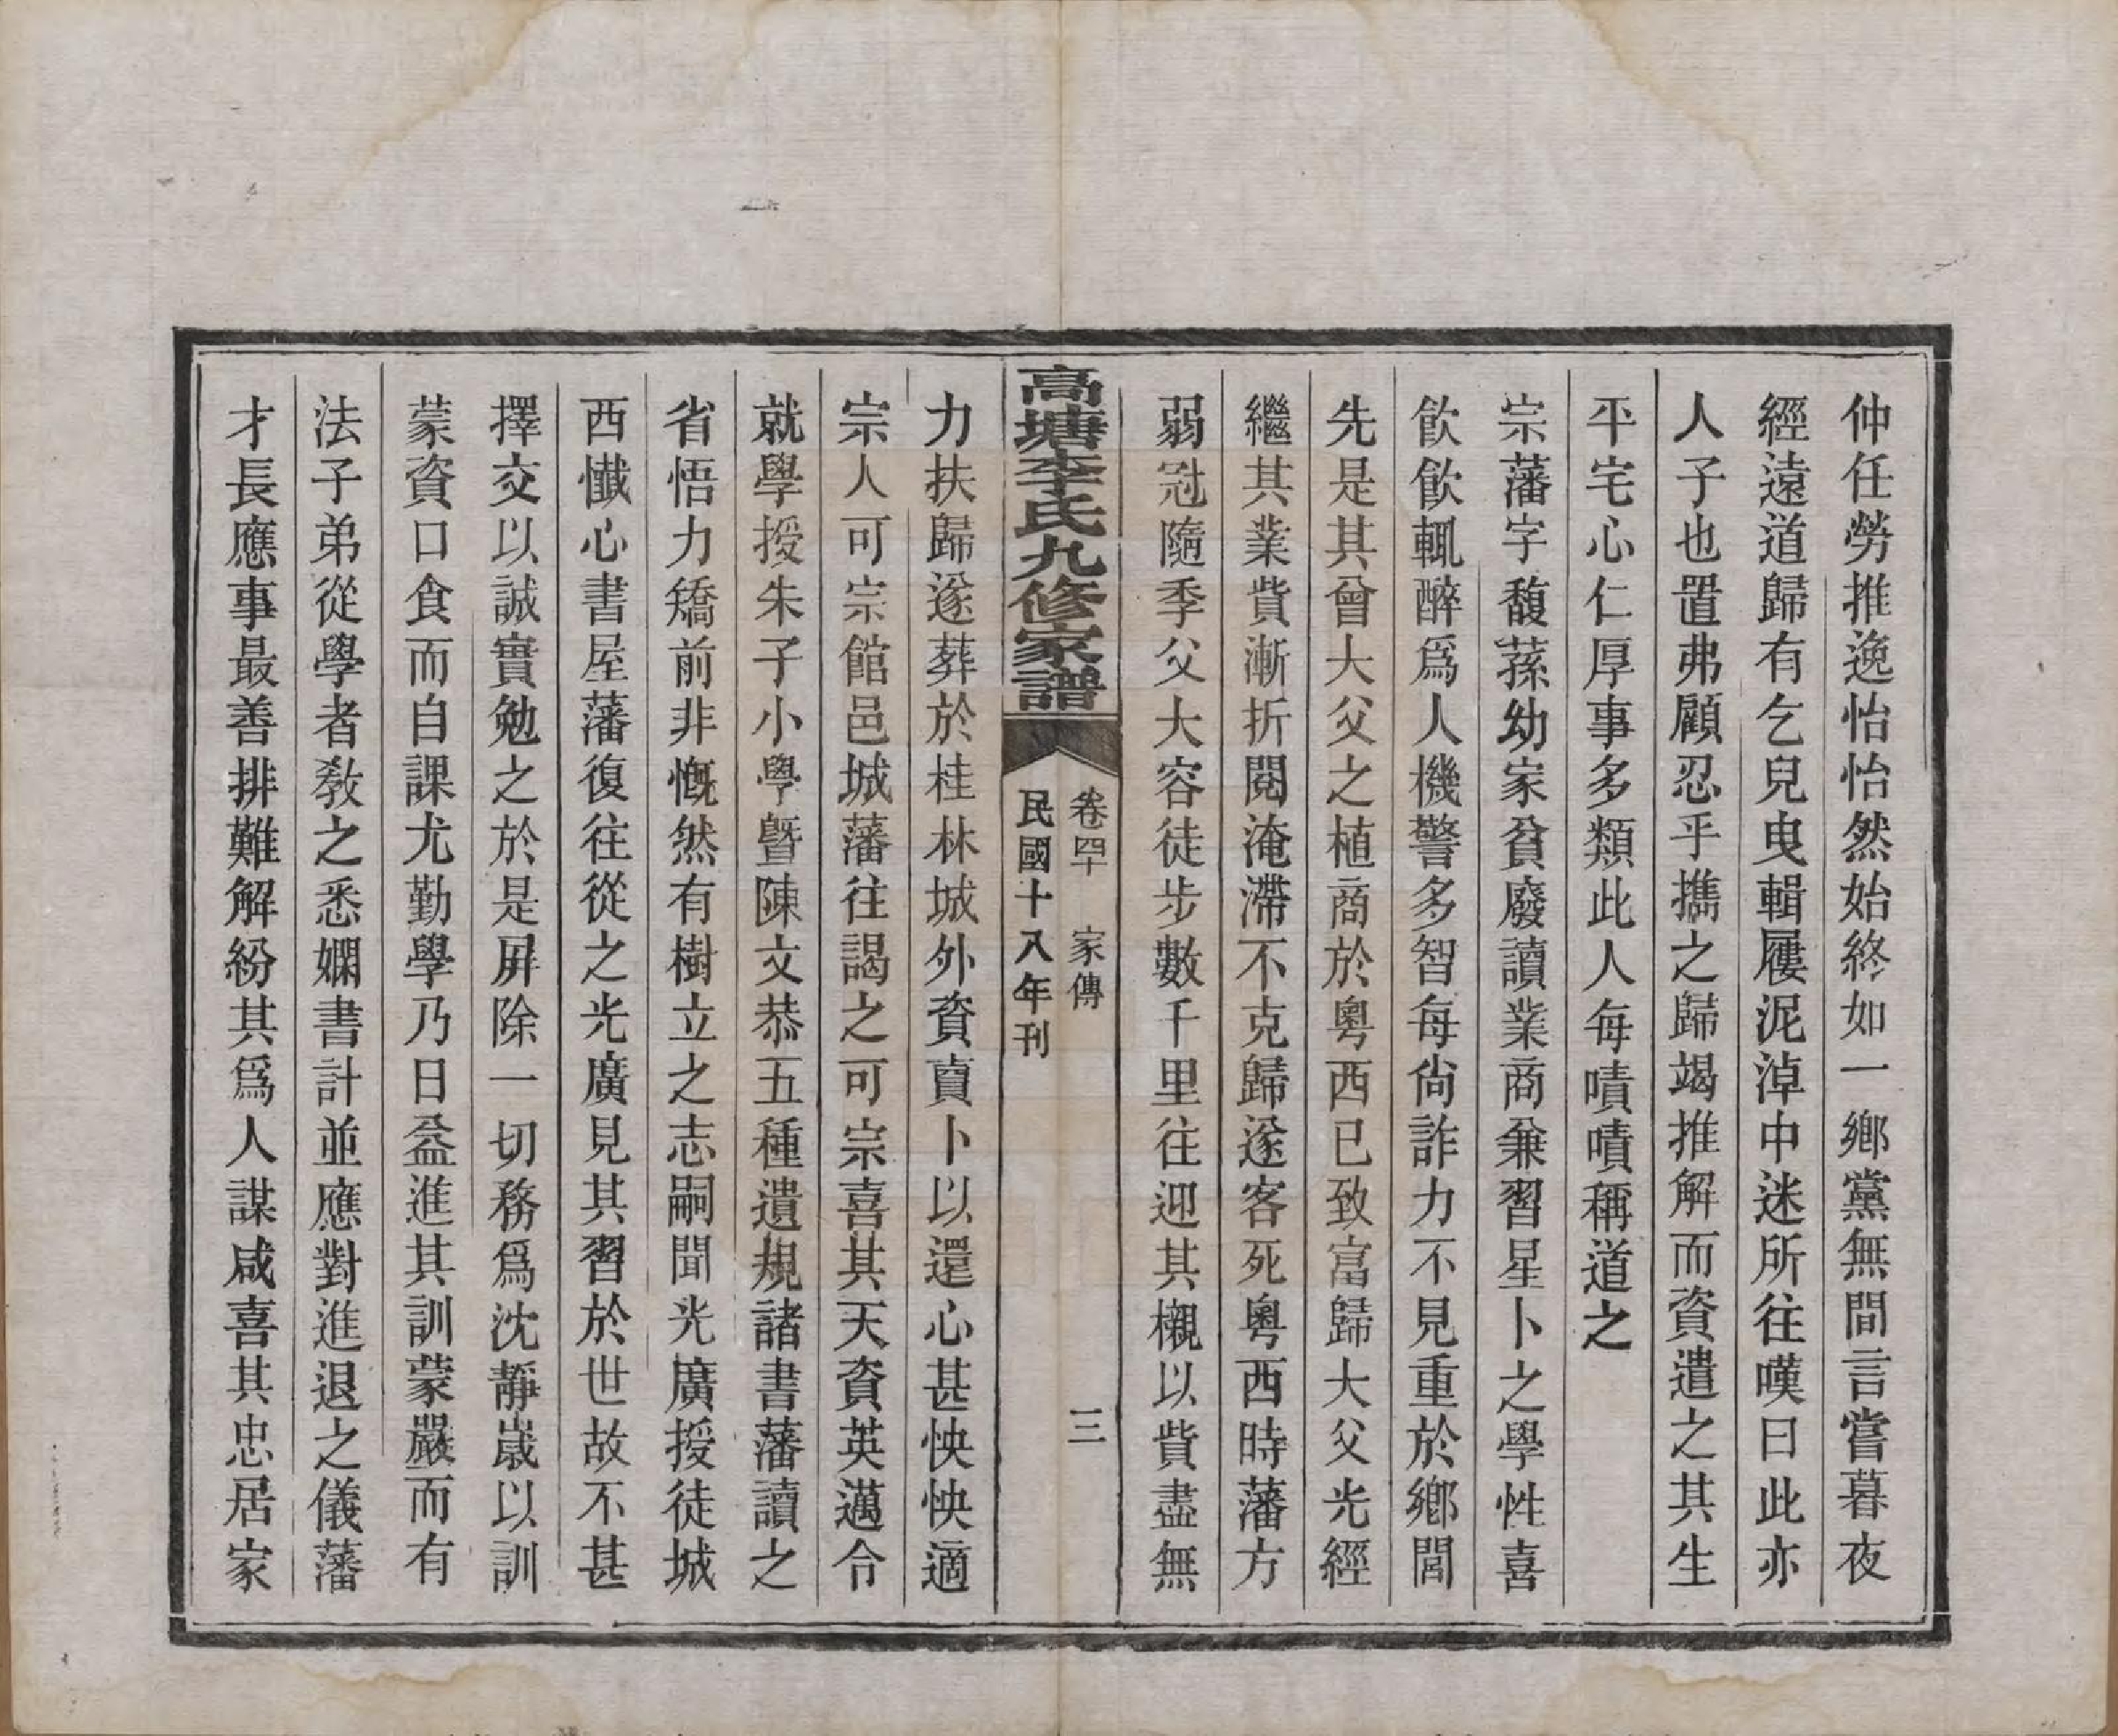 仲任勞推逸怡怡然始終如一鄉黨無間言嘗暮夜
經遠道歸有乞兒曳輯屨泥淖中迷所往嘆曰此亦
人子也置弗顧忍乎攜之歸竭推解而資遣之其生
平宅心仁厚事多類此人每嘖嘖稱道之
宗藩字馥蓀幼家貧廢讀業商兼習星卜之學性喜
飲飲輒醉爲人機警多智每尙詐力不見重於鄉閭
先是其曾大父之植商於粵西已致富歸大父光經
繼其業貲漸折閱淹滯不克歸遂客死粵西時藩方
弱冠隨季父大容徒步數千里往迎其櫬以貲盡無
高塘李氏九修家譜
卷四十 家傳
三
民國十八年刊
力扶歸遂葬於桂林城外資𧶠卜以還心甚怏怏適
宗人可宗館邑城藩往謁之可宗喜其天資英邁令
就學授朱子小學暨陳文恭五種遺規諸書藩讀之
省悟力矯前非慨然有樹立之志嗣聞光廣授徒城
西懺心書屋藩復往從之光廣見其習於世故不甚
擇交以誠實勉之於是屛除一切務爲沈靜歲以訓
蒙資口食而自課尤勤學乃日益進其訓蒙嚴而有
法子弟從學者敎之悉嫻書計並應對進退之儀藩
才長應事最善排難解紛其爲人謀咸喜其忠居家